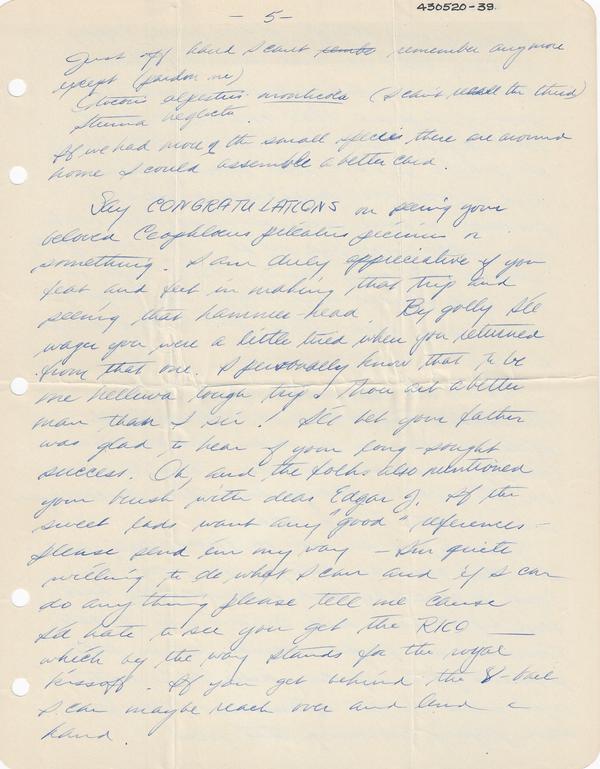 — 5 —
430520-39.
Just off hand I can't remember anymore
except (pardon me)
Otocoris alpestris monticola (I can't recall the third)
Sturna neglecta.
If we had more of the small species there are around
home I could assemble a better card.
Say CONGRATULATIONS on seeing your
beloved Ceophloeus pileatus picinus or
something. I am duly appreciative of your
feat and feet in making that trip and
seeing that hammer-head. By golly I'll
wager you were a little tired when you returned
from that one. I personally know that to be
one helluva tough trip. Thou art a better
man than I sir! I'll bet your father
was glad to hear of your long-sought
success. Oh, and the folks also mentioned
your brush with dear Edgar J. If the
sweet lads want any "good" references –
please send 'em my way – I'm quite
willing to do what I can and if I can
do anything please tell me cause
I'd hate to see you get the RKO —
which by the way stands for the royal
kissoff. If you get behind the 8-ball
I can maybe reach over and lend a
hand.